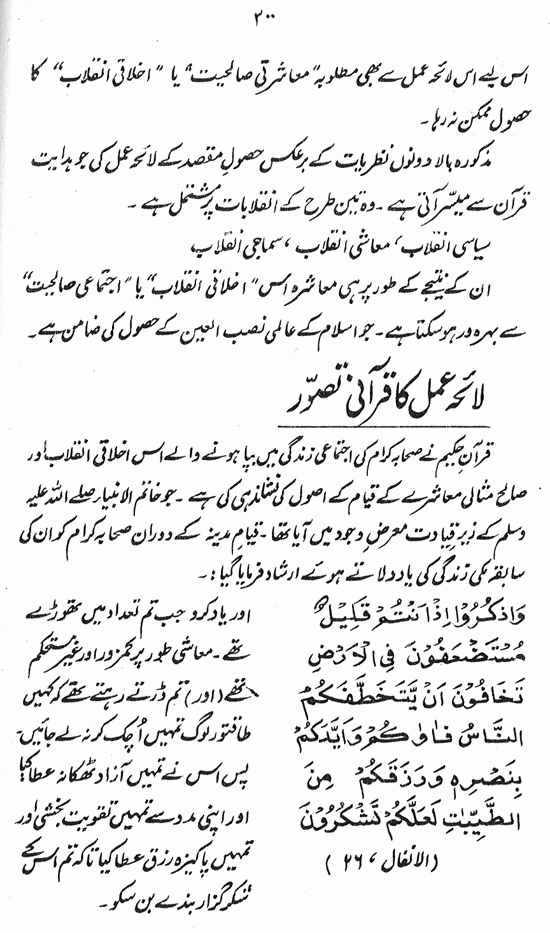 ۳۰۰
اس لیے اس لائحہ عمل سے بھی مطلوبہ "معاشرتی صالحیت" یا "اخلاقی انقلاب" کا
حصول ممکن نہ رہا۔
مذکورہ بالا دونوں نظریات کے برعکس حصولِ مقصد کے لائحہ عمل کی جو ہدایت
قرآن سے میسّر آتی ہے۔ وہ تین طرح کے انقلابات پر مشتمل ہے۔
سیاسی انقلاب، معاشی انقلاب، سماجی انقلاب
ان کے نتیجے کے طور پر ہی معاشرہ اس "اخلاقی انقلاب" یا "اجتماعی صالحیت"
سے بہرہ ور ہو سکتا ہے۔ جو اسلام کے عالمی نصب العین کے حصول کی ضامن ہے۔
لائحہ عمل کا قرآنی تصوّر
قرآنِ حکیم نے صحابہ کرام کی اجتماعی زندگی میں بپا ہونے والے اس اخلاقی انقلاب اور
صالح مثالی معاشرے کے قیام کے اصول کی نشاندہی کی ہے۔ جو خاتم الانبیاء صلے اللہ علیہ
وسلم کے زیرِ قیادت معرضِ وجود میں آیا تھا۔ قیامِ مدینہ کے دوران صحابہ کرام کو ان کی
سابقہ مکی زندگی کی یاد دلاتے ہوئے ارشاد فرمایا گیا:۔
وَاذْكُرُوْا اِذْ اَنْتُمْ قَلِيْلٌ
مُسْتَضْعَفُوْنَ فِی الْاَرْضِ
تَخَافُوْنَ اَنْ يَّتَخَطَّفَكُمْ
النَّاسُ فَاٰوٰكُمْ وَاَيَّدَكُمْ
بِنَصْرِهٖ وَرَزَقَكُمْ مِنَ
الطَّيِّبٰتِ لَعَلَّكُمْ تَشْكُرُوْنَ
(الانفال، ۲۶)
اور یاد کرو جب تم تعداد میں تھوڑے
تھے۔ معاشی طور پر کمزور اور غیر مستحکم
تھے (اور) تم ڈرتے رہتے تھے کہ کہیں
طاقتور لوگ تمہیں اُچک کر نہ لے جائیں۔
پس اس نے تمہیں آزاد ٹھکانہ عطا کیا
اور اپنی مدد سے تمہیں تقویت بخشی اور
تمہیں پاکیزہ رزق عطا کیا تاکہ تم اس کے
شکر گزار بندے بن سکو۔